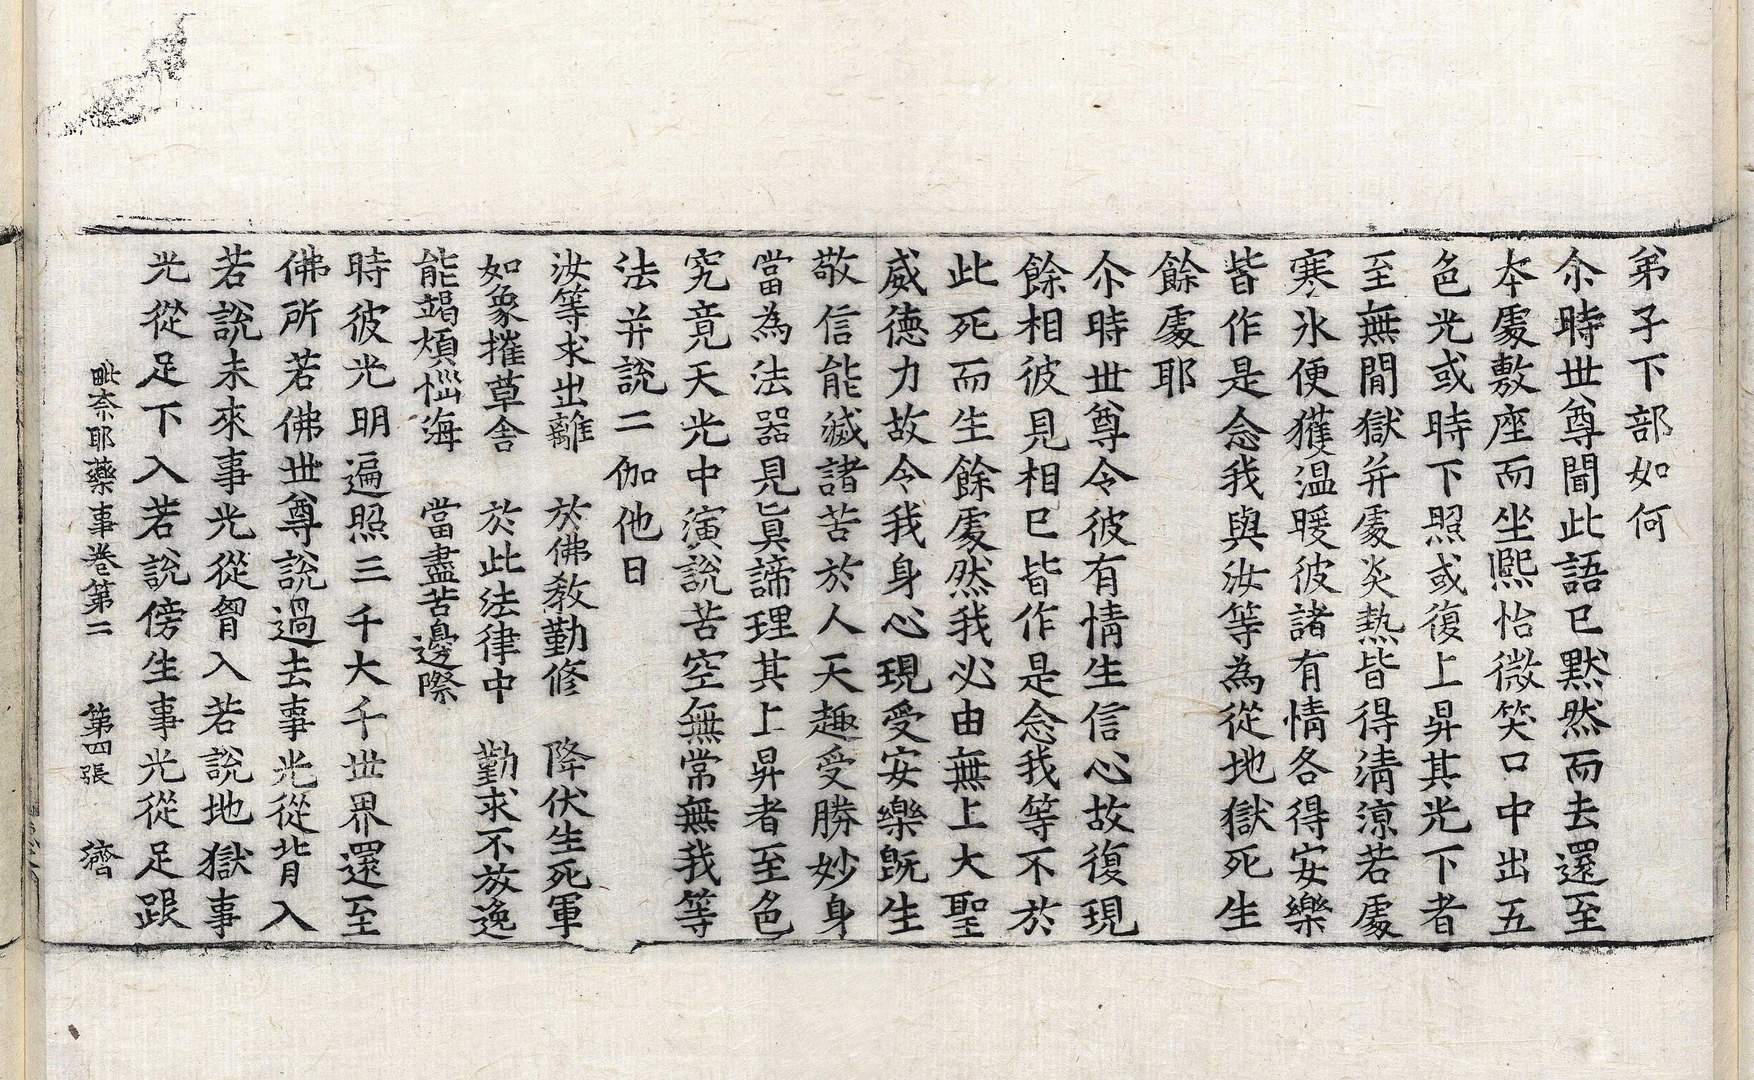 弟子下部如何
尒時世尊聞此語已默然而去還至
本處敷座而坐熈怡微笑口中出五
色光或時下照或復上昇其光下者
至無閒獄并處炎熱皆得清涼若處
寒氷便獲温暖彼諸有情各得安樂
皆作是念我與汝等為從地獄死生
餘處耶
尒時世尊令彼有情生信心故復現
餘相彼見相已皆作是念我等不於
此死而生餘處然我必由無上大聖
威德力故令我身心現受安樂旣生
敬信能滅諸苦於人天趣受勝妙身
當為法器見真諦理其上昇者至色
究竟天光中演說苦空無常無我等
法并說二伽他曰
汝等求出離　於佛教勤修　降伏生死軍
如象摧草舍　於此法律中　勤求不放逸
能竭煩惱海　當盡苦邊際
時彼光明遍照三千大千世界還至
佛所若佛世尊說過去事光從背入
若說未來事光從胷入若說地獄事
光從足下入若說傍生事光從足跟
毗奈耶藥事卷第二　第四張　濟